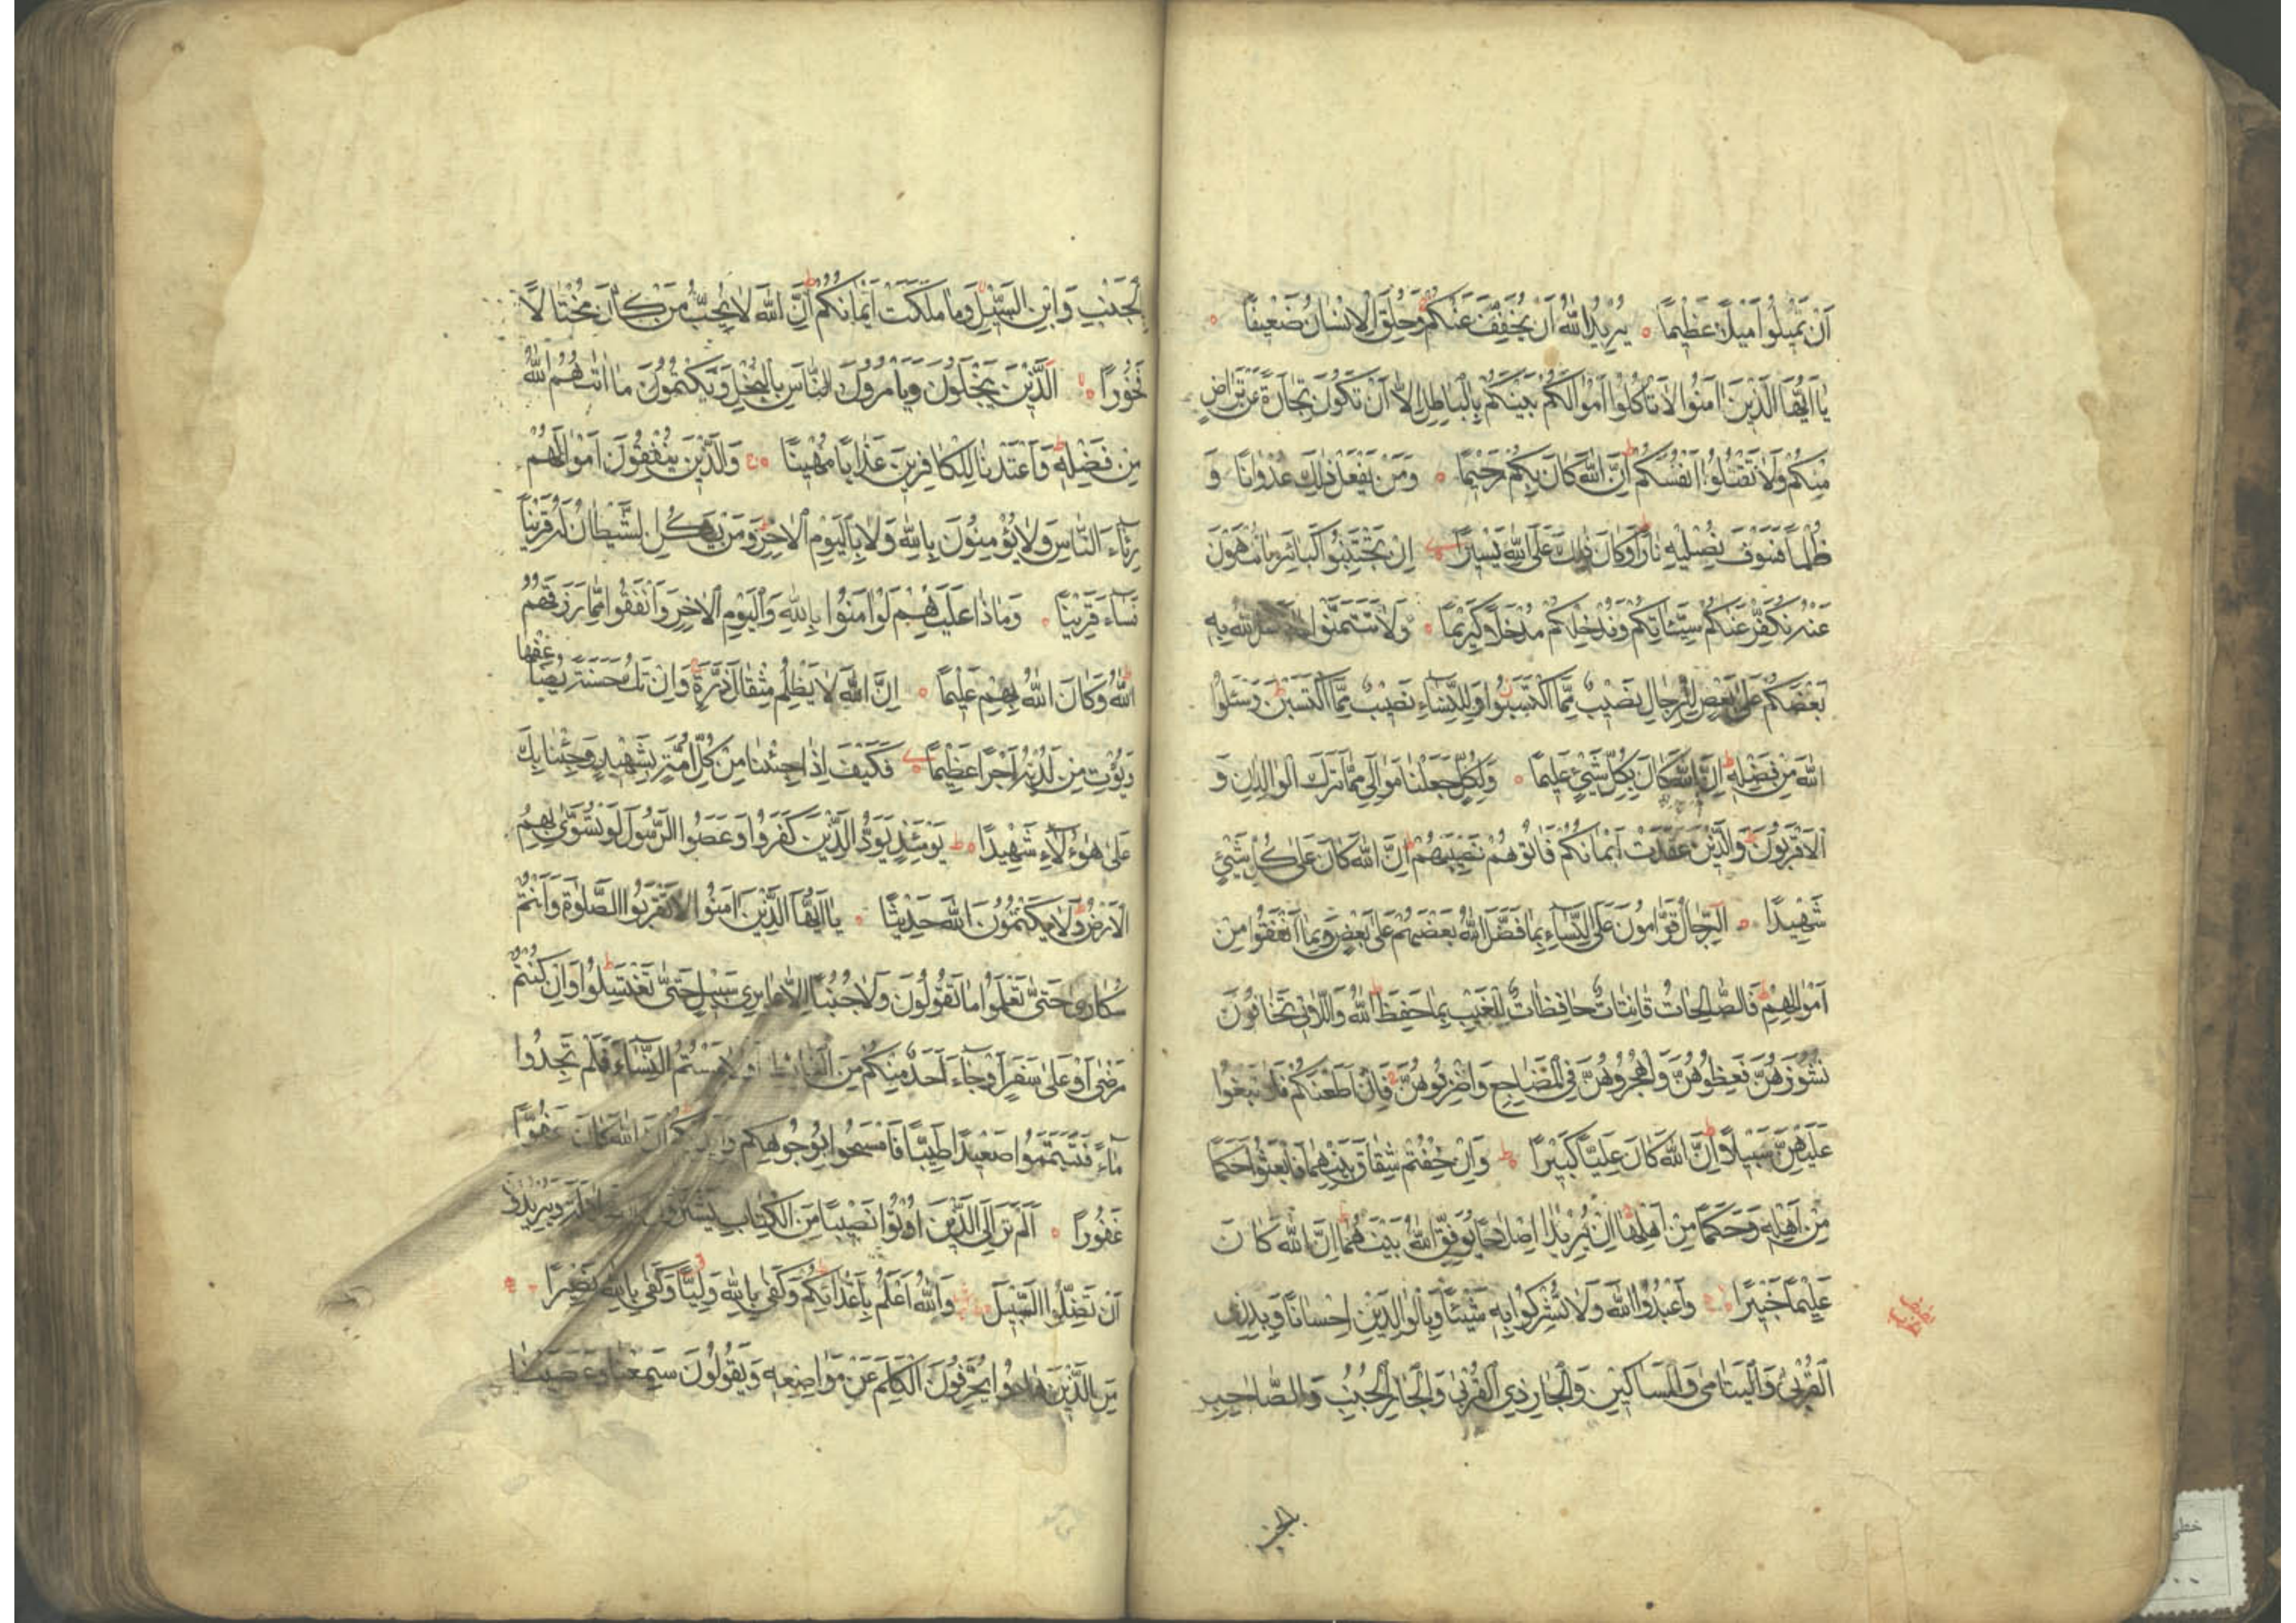 اَنْ تَمِيْلُوا مَيْلًا عَظِيْمًا ۝ يُرِيْدُ اللّٰهُ اَنْ يُخَفِّفَ عَنْكُمْ وَخُلِقَ الْاِنْسَانُ ضَعِيْفًا ۝
يٰا اَيُّهَا الَّذِيْنَ اٰمَنُوا لَا تَأْكُلُوا اَمْوَالَكُمْ بَيْنَكُمْ بِالْبَاطِلِ اِلَّا اَنْ تَكُوْنَ تِجَارَةً عَنْ تَرَاضٍ
مِنْكُمْ وَلَا تَقْتُلُوا اَنْفُسَكُمْ ط اِنَّ اللّٰهَ كَانَ بِكُمْ رَحِيْمًا ۝ وَمَنْ يَفْعَلْ ذٰلِكَ عُدْوَانًا وَ
ظُلْمًا فَسَوْفَ نُصْلِيْهِ نَارًا وَكَانَ ذٰلِكَ عَلَى اللّٰهِ يَسِيْرًا اِنْ تَجْتَنِبُوا كَبَائِرَ مَا تُنْهَوْنَ
عَنْهُ نُكَفِّرْ عَنْكُمْ سَيِّئَاتِكُمْ وَنُدْخِلْكُمْ مُدْخَلًا كَرِيْمًا ۝ وَلَا تَتَمَنَّوْا اللّٰهُ بِهِ
بَعْضَكُمْ عَلٰى بَعْضٍ لِلرِّجَالِ نَصِيْبٌ مِمَّا اكْتَسَبُوا وَلِلنِّسَاءِ نَصِيْبٌ مِمَّا اكْتَسَبْنَ ط وَسْئَلُوا
اللّٰهَ مِنْ فَضْلِهِ ط اِنَّ اللّٰهَ كَانَ بِكُلِّ شَيْئٍ عَلِيْمًا ۝ وَلِكُلٍّ جَعَلْنَا مَوَالِىَ مِمَّا تَرَكَ الْوَالِدَانِ وَ
الْاَقْرَبُوْنَ وَالَّذِيْنَ عَقَدَتْ اَيْمَانُكُمْ فَاٰتُوْهُمْ نَصِيْبَهُمْ ط اِنَّ اللّٰهَ كَانَ عَلٰى كُلِّ شَيْئٍ
شَهِيْدًا ۝ اَلرِّجَالُ قَوَّامُوْنَ عَلَى النِّسَاءِ بِمَا فَضَّلَ اللّٰهُ بَعْضَهُمْ عَلٰى بَعْضٍ وَبِمَا اَنْفَقُوا مِنْ
اَمْوَالِهِمْ ط فَالصَّالِحَاتُ قَانِتَاتٌ حَافِظَاتٌ لِلْغَيْبِ بِمَا حَفِظَ اللّٰهُ ط وَاللَّاتِى تَخَافُوْنَ
نُشُوْزَهُنَّ فَعِظُوْهُنَّ وَاهْجُرُوْهُنَّ فِى الْمَضَاجِعِ وَاضْرِبُوْهُنَّ فَاِنْ اَطَعْنَكُمْ فَلَا تَبْغُوا
عَلَيْهِنَّ سَبِيْلًا ط اِنَّ اللّٰهَ كَانَ عَلِيًّا كَبِيْرًا ۝ وَاِنْ خِفْتُمْ شِقَاقَ بَيْنِهِمَا فَابْعَثُوا حَكَمًا
مِنْ اَهْلِهِ وَحَكَمًا مِنْ اَهْلِهَا اِنْ يُرِيْدَا اِصْلَاحًا يُوَفِّقِ اللّٰهُ بَيْنَهُمَا ط اِنَّ اللّٰهَ كَانَ
عَلِيْمًا خَبِيْرًا ۝ وَاعْبُدُوا اللّٰهَ وَلَا تُشْرِكُوا بِهِ شَيْئًا وَبِالْوَالِدَيْنِ اِحْسَانًا وَبِذِى
الْقُرْبٰى وَالْيَتَامٰى وَالْمَسَاكِيْنِ وَالْجَارِ ذِى الْقُرْبٰى وَالْجَارِ الْجُنُبِ وَالصَّاحِبِ
بالجنب
بِالْجَنْبِ وَابْنِ السَّبِيْلِ وَمَا مَلَكَتْ اَيْمَانُكُمْ ط اِنَّ اللّٰهَ لَا يُحِبُّ مَنْ كَانَ مُخْتَالًا
فَخُوْرًا ۝ اَلَّذِيْنَ يَبْخَلُوْنَ وَيَأْمُرُوْنَ النَّاسَ بِالْبُخْلِ وَيَكْتُمُوْنَ مَا اٰتٰهُمُ اللّٰهُ
مِنْ فَضْلِهِ ط وَاَعْتَدْنَا لِلْكَافِرِيْنَ عَذَابًا مُهِيْنًا ۝ وَالَّذِيْنَ يُنْفِقُوْنَ اَمْوَالَهُمْ
رِئَاءَ النَّاسِ وَلَا يُؤْمِنُوْنَ بِاللّٰهِ وَلَا بِالْيَوْمِ الْاٰخِرِ ط وَمَنْ يَكُنِ الشَّيْطَانُ لَهُ قَرِيْنًا
فَسَاءَ قَرِيْنًا ۝ وَمَاذَا عَلَيْهِمْ لَوْ اٰمَنُوا بِاللّٰهِ وَالْيَوْمِ الْاٰخِرِ وَاَنْفَقُوا مِمَّا رَزَقَهُمُ
اللّٰهُ ط وَكَانَ اللّٰهُ بِهِمْ عَلِيْمًا ۝ اِنَّ اللّٰهَ لَا يَظْلِمُ مِثْقَالَ ذَرَّةٍ وَاِنْ تَكُ حَسَنَةً يُضَاعِفْهَا
وَيُؤْتِ مِنْ لَدُنْهُ اَجْرًا عَظِيْمًا فَكَيْفَ اِذَا جِئْنَا مِنْ كُلِّ اُمَّةٍ بِشَهِيْدٍ وَجِئْنَا بِكَ
عَلٰى هٰؤُلَاءِ شَهِيْدًا ۝ ط يَوْمَئِذٍ يَوَدُّ الَّذِيْنَ كَفَرُوا وَعَصَوُا الرَّسُوْلَ لَوْ تُسَوّٰى بِهِمُ
الْاَرْضُ ط وَلَا يَكْتُمُوْنَ اللّٰهَ حَدِيْثًا ۝ يٰا اَيُّهَا الَّذِيْنَ اٰمَنُوا لَا تَقْرَبُوا الصَّلٰوةَ وَاَنْتُمْ
سُكَارٰى حَتّٰى تَعْلَمُوا مَا تَقُوْلُوْنَ وَلَا جُنُبًا اِلَّا عَابِرِى سَبِيْلٍ حَتّٰى تَغْتَسِلُوا ط وَاِنْ كُنْتُمْ
مَرْضٰى اَوْ عَلٰى سَفَرٍ اَوْ جَاءَ اَحَدٌ مِنْكُمْ مِنَ الْغَائِطِ اَوْ لَامَسْتُمُ النِّسَاءَ فَلَمْ تَجِدُوا
مَاءً فَتَيَمَّمُوا صَعِيْدًا طَيِّبًا فَامْسَحُوا بِوُجُوْهِكُمْ اِنَّ اللّٰهَ كَانَ عَفُوًّا
غَفُوْرًا ۝ اَلَمْ تَرَ اِلَى الَّذِيْنَ اُوْتُوا نَصِيْبًا مِنَ الْكِتَابِ يَشْتَرُوْنَ وَيُرِيْدُوْنَ
اَنْ تَضِلُّوا السَّبِيْلَ وَاللّٰهُ اَعْلَمُ بِاَعْدَائِكُمْ ط وَكَفٰى بِاللّٰهِ وَلِيًّا وَكَفٰى بِاللّٰهِ نَصِيْرًا
مِنَ الَّذِيْنَ هَادُوا يُحَرِّفُوْنَ الْكَلِمَ عَنْ مَوَاضِعِهِ وَيَقُوْلُوْنَ سَمِعْنَا وَعَصَيْنَا